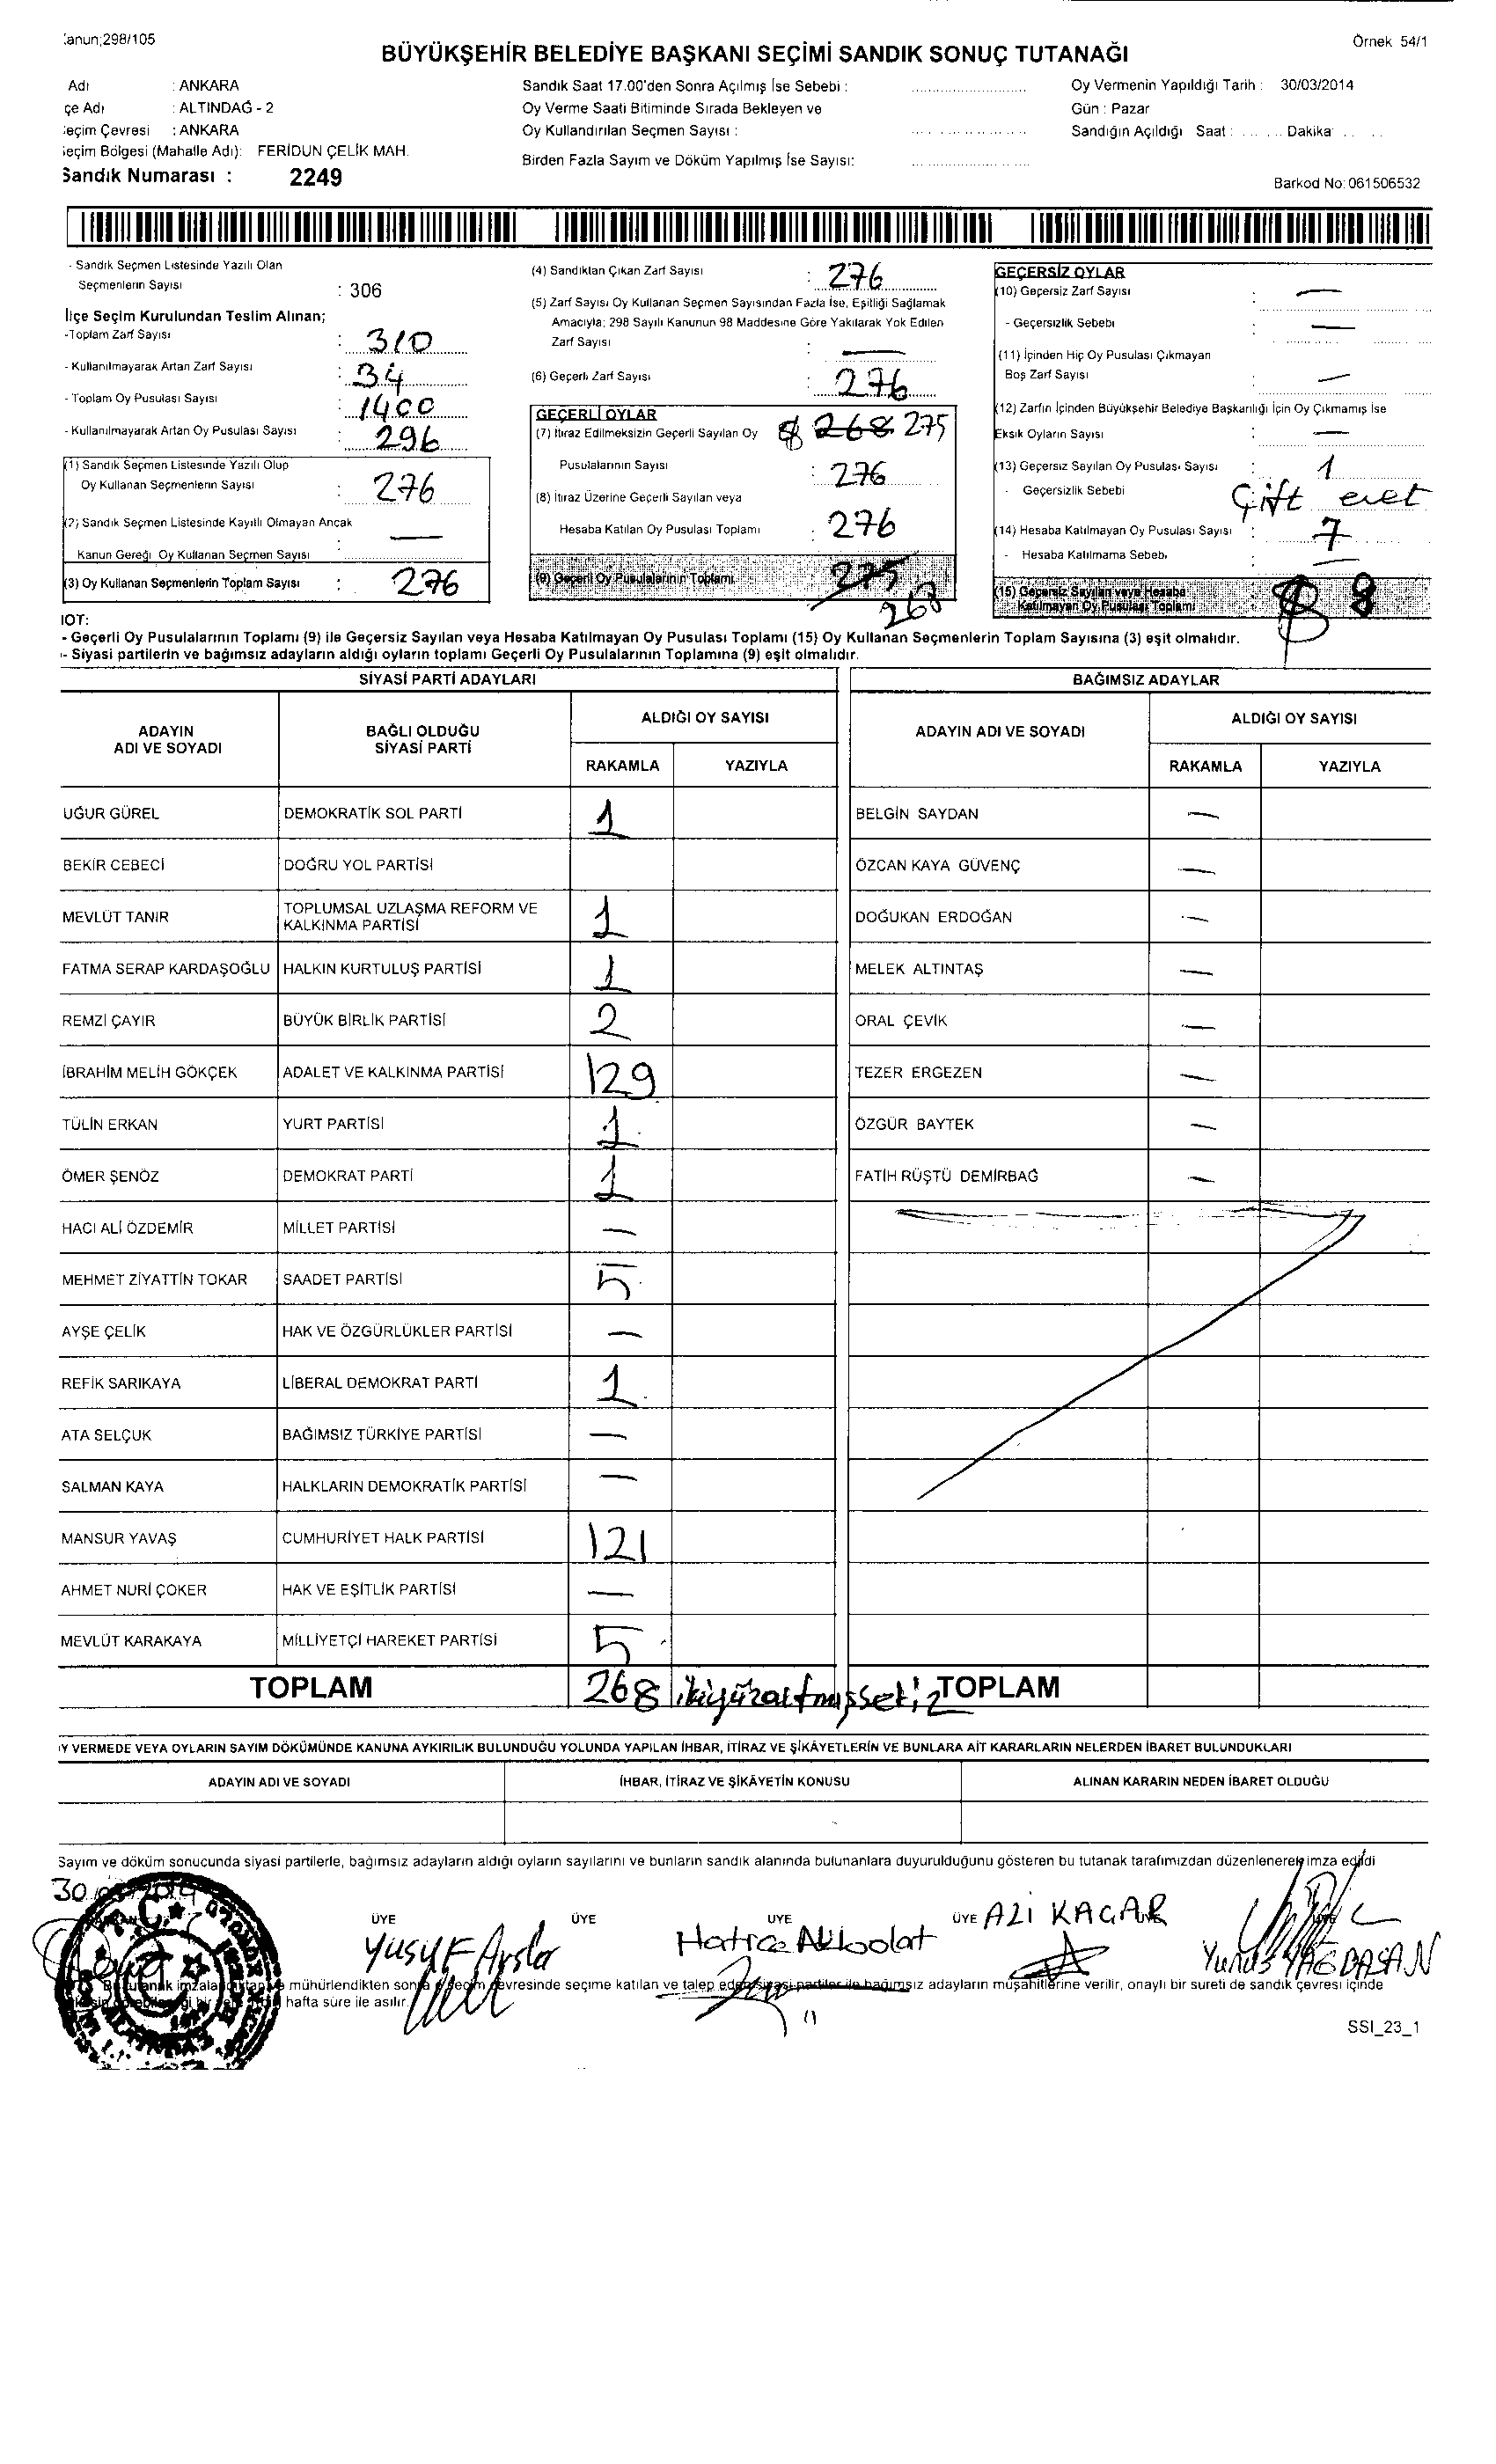 anun;298/105
Örnek 54/1
BÜYÜKŞEHİR BELEDİYE BAŞKANI SEÇİMİ SANDIK SONUÇ TUTANAĞI
Adı : ANKARA
çe Adı : ALTINDAĞ - 2
eçim Çevresi : ANKARA
eçim Bölgesi (Mahalle Adı): FERİDUN ÇELİK MAH.
Sandık Numarası : 2249
Sandık Saat 17.00'den Sonra Açılmış İse Sebebi :
Oy Verme Saati Bitiminde Sırada Bekleyen ve
Oy Kullandırılan Seçmen Sayısı :
Birden Fazla Sayım ve Döküm Yapılmış İse Sayısı:
Oy Vermenin Yapıldığı Tarih : 30/03/2014
Gün : Pazar
Sandığın Açıldığı Saat : Dakika
Barkod No: 061506532
- Sandık Seçmen Listesinde Yazılı Olan
Seçmenlerin Sayısı : 306
İlçe Seçim Kurulundan Teslim Alınan;
-Toplam Zarf Sayısı : 310
- Kullanılmayarak Artan Zarf Sayısı : 34
- Toplam Oy Pusulası Sayısı : 1400
- Kullanılmayarak Artan Oy Pusulası Sayısı : 296
(1) Sandık Seçmen Listesinde Yazılı Olup
Oy Kullanan Seçmenlerin Sayısı : 276
(2) Sandık Seçmen Listesinde Kayıtlı Olmayan Ancak
Kanun Gereği Oy Kullanan Seçmen Sayısı : —
(3) Oy Kullanan Seçmenlerin Toplam Sayısı : 276
(4) Sandıktan Çıkan Zarf Sayısı : 276
(5) Zarf Sayısı Oy Kullanan Seçmen Sayısından Fazla İse, Eşitliği Sağlamak
Amacıyla; 298 Sayılı Kanunun 98 Maddesine Göre Yakılarak Yok Edilen
Zarf Sayısı : —
(6) Geçerli Zarf Sayısı : 276
GEÇERLİ OYLAR
(7) İtiraz Edilmeksizin Geçerli Sayılan Oy 268 275
Pusulalarının Sayısı : 276
(8) İtiraz Üzerine Geçerli Sayılan veya
Hesaba Katılan Oy Pusulası Toplamı : 276
(9) Geçerli Oy Pusulalarının Toplamı 275
268
GEÇERSİZ OYLAR
(10) Geçersiz Zarf Sayısı : —
- Geçersizlik Sebebi : —
(11) İçinden Hiç Oy Pusulası Çıkmayan
Boş Zarf Sayısı : —
(12) Zarfın İçinden Büyükşehir Belediye Başkanlığı İçin Oy Çıkmamış İse
Eksik Oyların Sayısı : —
(13) Geçersiz Sayılan Oy Pusulası Sayısı : 1
- Geçersizlik Sebebi Çift evet
(14) Hesaba Katılmayan Oy Pusulası Sayısı : 7
- Hesaba Katılmama Sebebi : —
(15) Geçersiz Sayılan veya Hesaba
Katılmayan Oy Pusulası Toplamı : 8
IOT:
- Geçerli Oy Pusulalarının Toplamı (9) ile Geçersiz Sayılan veya Hesaba Katılmayan Oy Pusulası Toplamı (15) Oy Kullanan Seçmenlerin Toplam Sayısına (3) eşit olmalıdır.
- Siyasi partilerin ve bağımsız adayların aldığı oyların toplamı Geçerli Oy Pusulalarının Toplamına (9) eşit olmalıdır.
SİYASİ PARTİ ADAYLARI
ADAYIN ADI VE SOYADI
BAĞLI OLDUĞU SİYASİ PARTİ
ALDIĞI OY SAYISI
RAKAMLA YAZIYLA
UĞUR GÜREL DEMOKRATİK SOL PARTİ 1
BEKİR CEBECİ DOĞRU YOL PARTİSİ
MEVLÜT TANIR TOPLUMSAL UZLAŞMA REFORM VE KALKINMA PARTİSİ 1
FATMA SERAP KARDAŞOĞLU HALKIN KURTULUŞ PARTİSİ 1
REMZİ ÇAYIR BÜYÜK BİRLİK PARTİSİ 2
İBRAHİM MELİH GÖKÇEK ADALET VE KALKINMA PARTİSİ 129
TÜLİN ERKAN YURT PARTİSİ 1
ÖMER ŞENÖZ DEMOKRAT PARTİ 1
HACI ALİ ÖZDEMİR MİLLET PARTİSİ —
MEHMET ZİYATTİN TOKAR SAADET PARTİSİ 5
AYŞE ÇELİK HAK VE ÖZGÜRLÜKLER PARTİSİ —
REFİK SARIKAYA LİBERAL DEMOKRAT PARTİ 1
ATA SELÇUK BAĞIMSIZ TÜRKİYE PARTİSİ —
SALMAN KAYA HALKLARIN DEMOKRATİK PARTİSİ —
MANSUR YAVAŞ CUMHURİYET HALK PARTİSİ 121
AHMET NURİ ÇOKER HAK VE EŞİTLİK PARTİSİ —
MEVLÜT KARAKAYA MİLLİYETÇİ HAREKET PARTİSİ 5
TOPLAM 268 ikiyüzaltmışsekiz
BAĞIMSIZ ADAYLAR
ADAYIN ADI VE SOYADI
ALDIĞI OY SAYISI
RAKAMLA YAZIYLA
BELGİN SAYDAN —
ÖZCAN KAYA GÜVENÇ —
DOĞUKAN ERDOĞAN —
MELEK ALTINTAŞ —
ORAL ÇEVİK —
TEZER ERGEZEN —
ÖZGÜR BAYTEK —
FATİH RÜŞTÜ DEMİRBAĞ —
TOPLAM
Y VERMEDE VEYA OYLARIN SAYIM DÖKÜMÜNDE KANUNA AYKIRILIK BULUNDUĞU YOLUNDA YAPILAN İHBAR, İTİRAZ VE ŞİKÂYETLERİN VE BUNLARA AİT KARARLARIN NELERDEN İBARET BULUNDUKLARI
ADAYIN ADI VE SOYADI
İHBAR, İTİRAZ VE ŞİKÂYETİN KONUSU
ALINAN KARARIN NEDEN İBARET OLDUĞU
Sayım ve döküm sonucunda siyasi partilerle, bağımsız adayların aldığı oyların sayılarını ve bunların sandık alanında bulunanlara duyurulduğunu gösteren bu tutanak tarafımızdan düzenlenerek imza edildi
30
ÜYE ÜYE ÜYE ÜYE
Yusuf Arslan
Hatice Akbolat
ALİ KAÇAR
Yunus YAĞBASAN
Bu tutanak imzalanıp mühürlendikten sonra seçim çevresinde seçime katılan ve talep eden siyasi partiler ile bağımsız adayların müşahitlerine verilir, onaylı bir sureti de sandık çevresi içinde
hafta süre ile asılır.
SSI_23_1